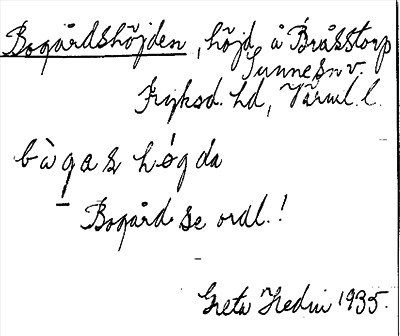 Bogårdshöjden, höjd å Bråsstorp
Sunne sn v.
Fryksd. hd, Värml. l.
bὰgas hǿgda
Bogård se ordl.!
Greta Hedin 1935.